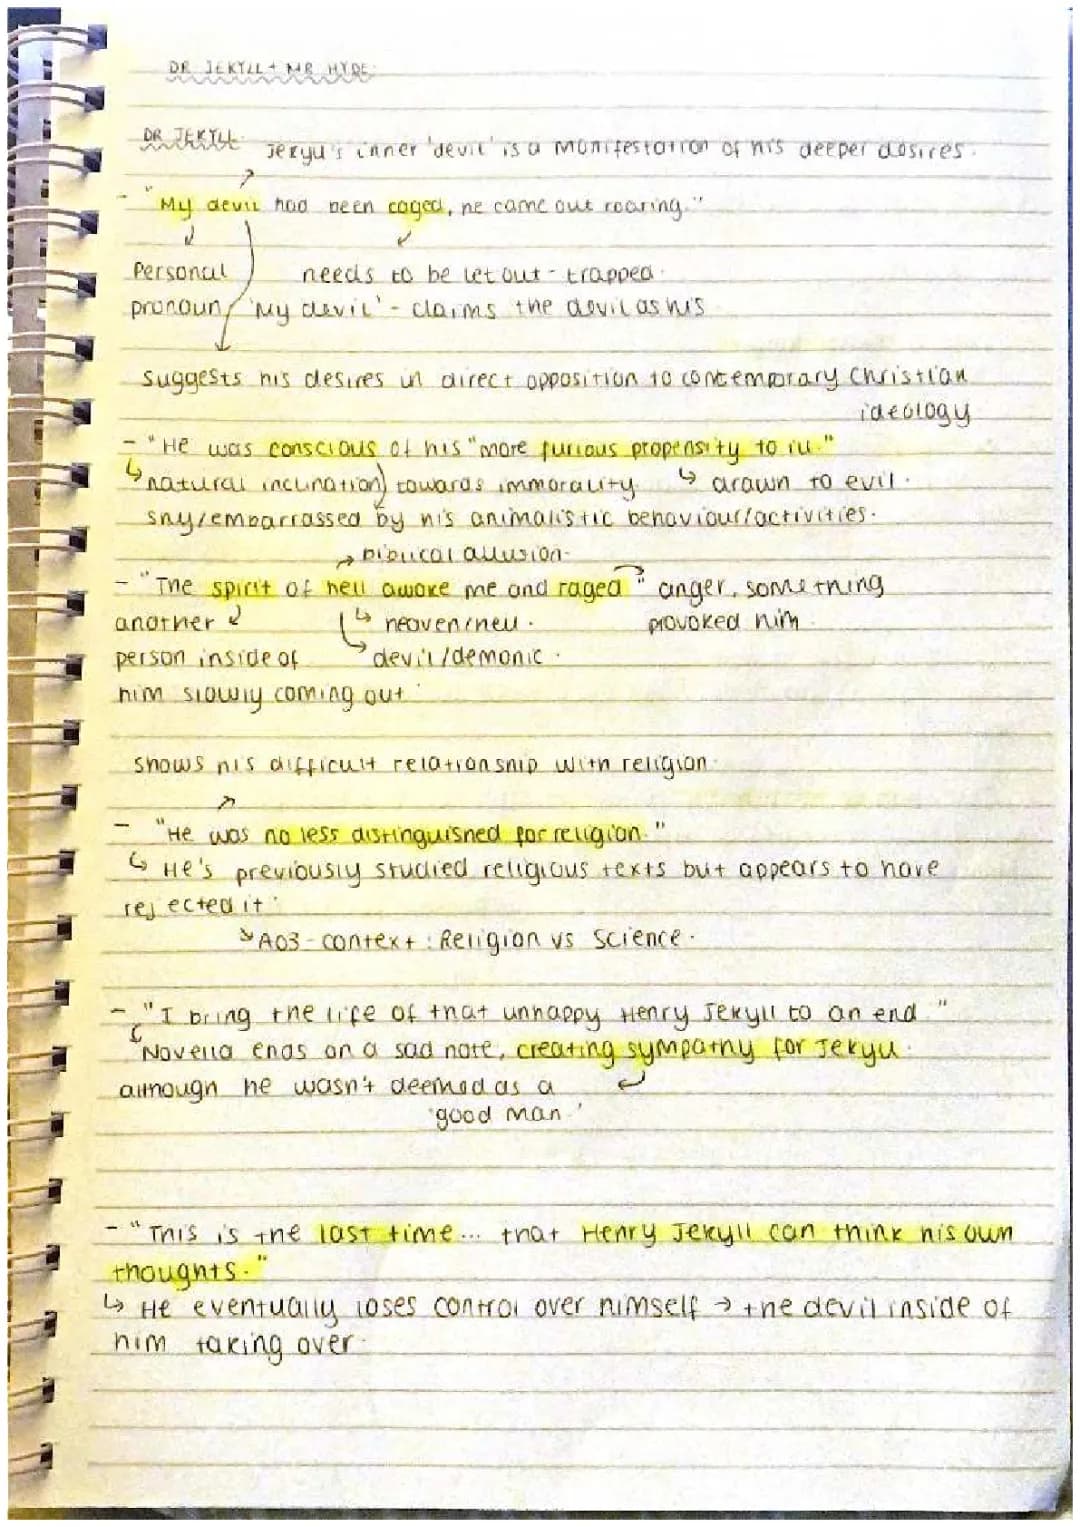 DR JEKYLL + MR HYDE
DR JEKYLL
Jekyll's inner 'devil' is a manifestation of his deeper desires.
- "My devil had been caged, he came out roaring."
Personal needs to be let out - trapped.
pronoun 'My devil' - claims the devil as his
suggests his desires in direct opposition to contemporary Christian
ideology
- "He was conscious of his "more furious propensity to ill."
↳ natural inclination) towards immorality ↳ drawn to evil.
shy/embarrassed by his animalistic behaviour/activities.
→ biblical allusion.
- "The spirit of hell awoke me and raged" anger, something
another ↳ heaven/hell. provoked him.
person inside of devil/demonic.
him slowly coming out.
shows his difficult relationship with religion.
- "He was no less distinguished for religion."
↳ He's previously studied religious texts but appears to have
rejected it.
↘ A03 - context : Religion vs Science.
- "I bring the life of that unhappy Henry Jekyll to an end."
Novella ends on a sad note, creating sympathy for Jekyll.
although he wasn't deemed as a
'good man.'
- "This is the last time... that Henry Jekyll can think his own
thoughts."
↳ He eventually loses control over himself → the devil inside of
him taking over.